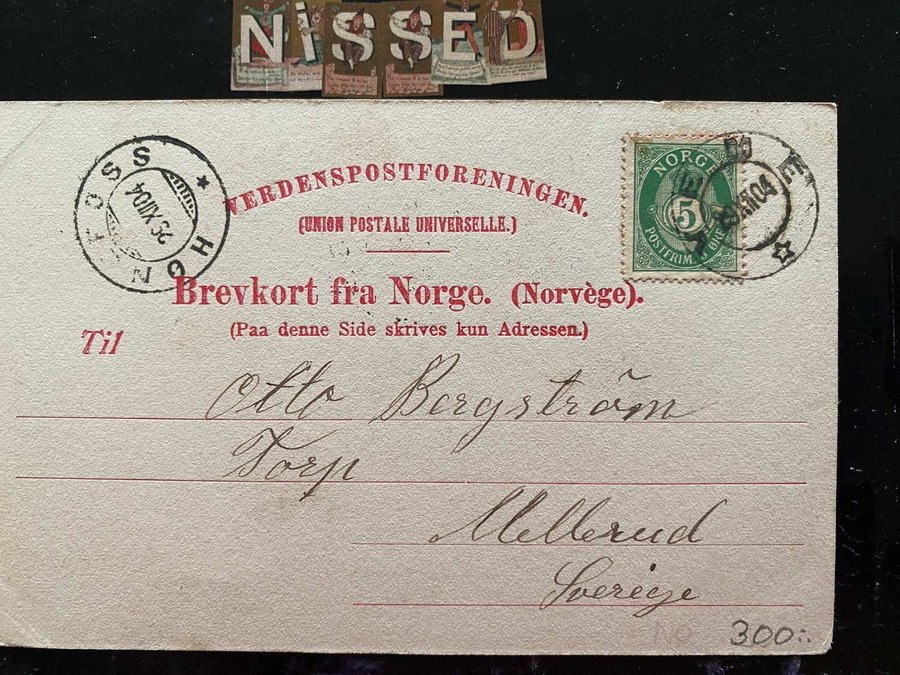 NiSSED
VERDENSPOSTFORENINGEN.
(UNION POSTALE UNIVERSELLE.)
Brevkort fra Norge. (Norvège).
(Paa denne Side skrives kun Adressen.)
Til
HÖNEFOSS
25 XII 04
NORGE
5
POSTFRIM.
XII 04
Otto Bergström
Torp
Mellerud
Sverige
No 300:-